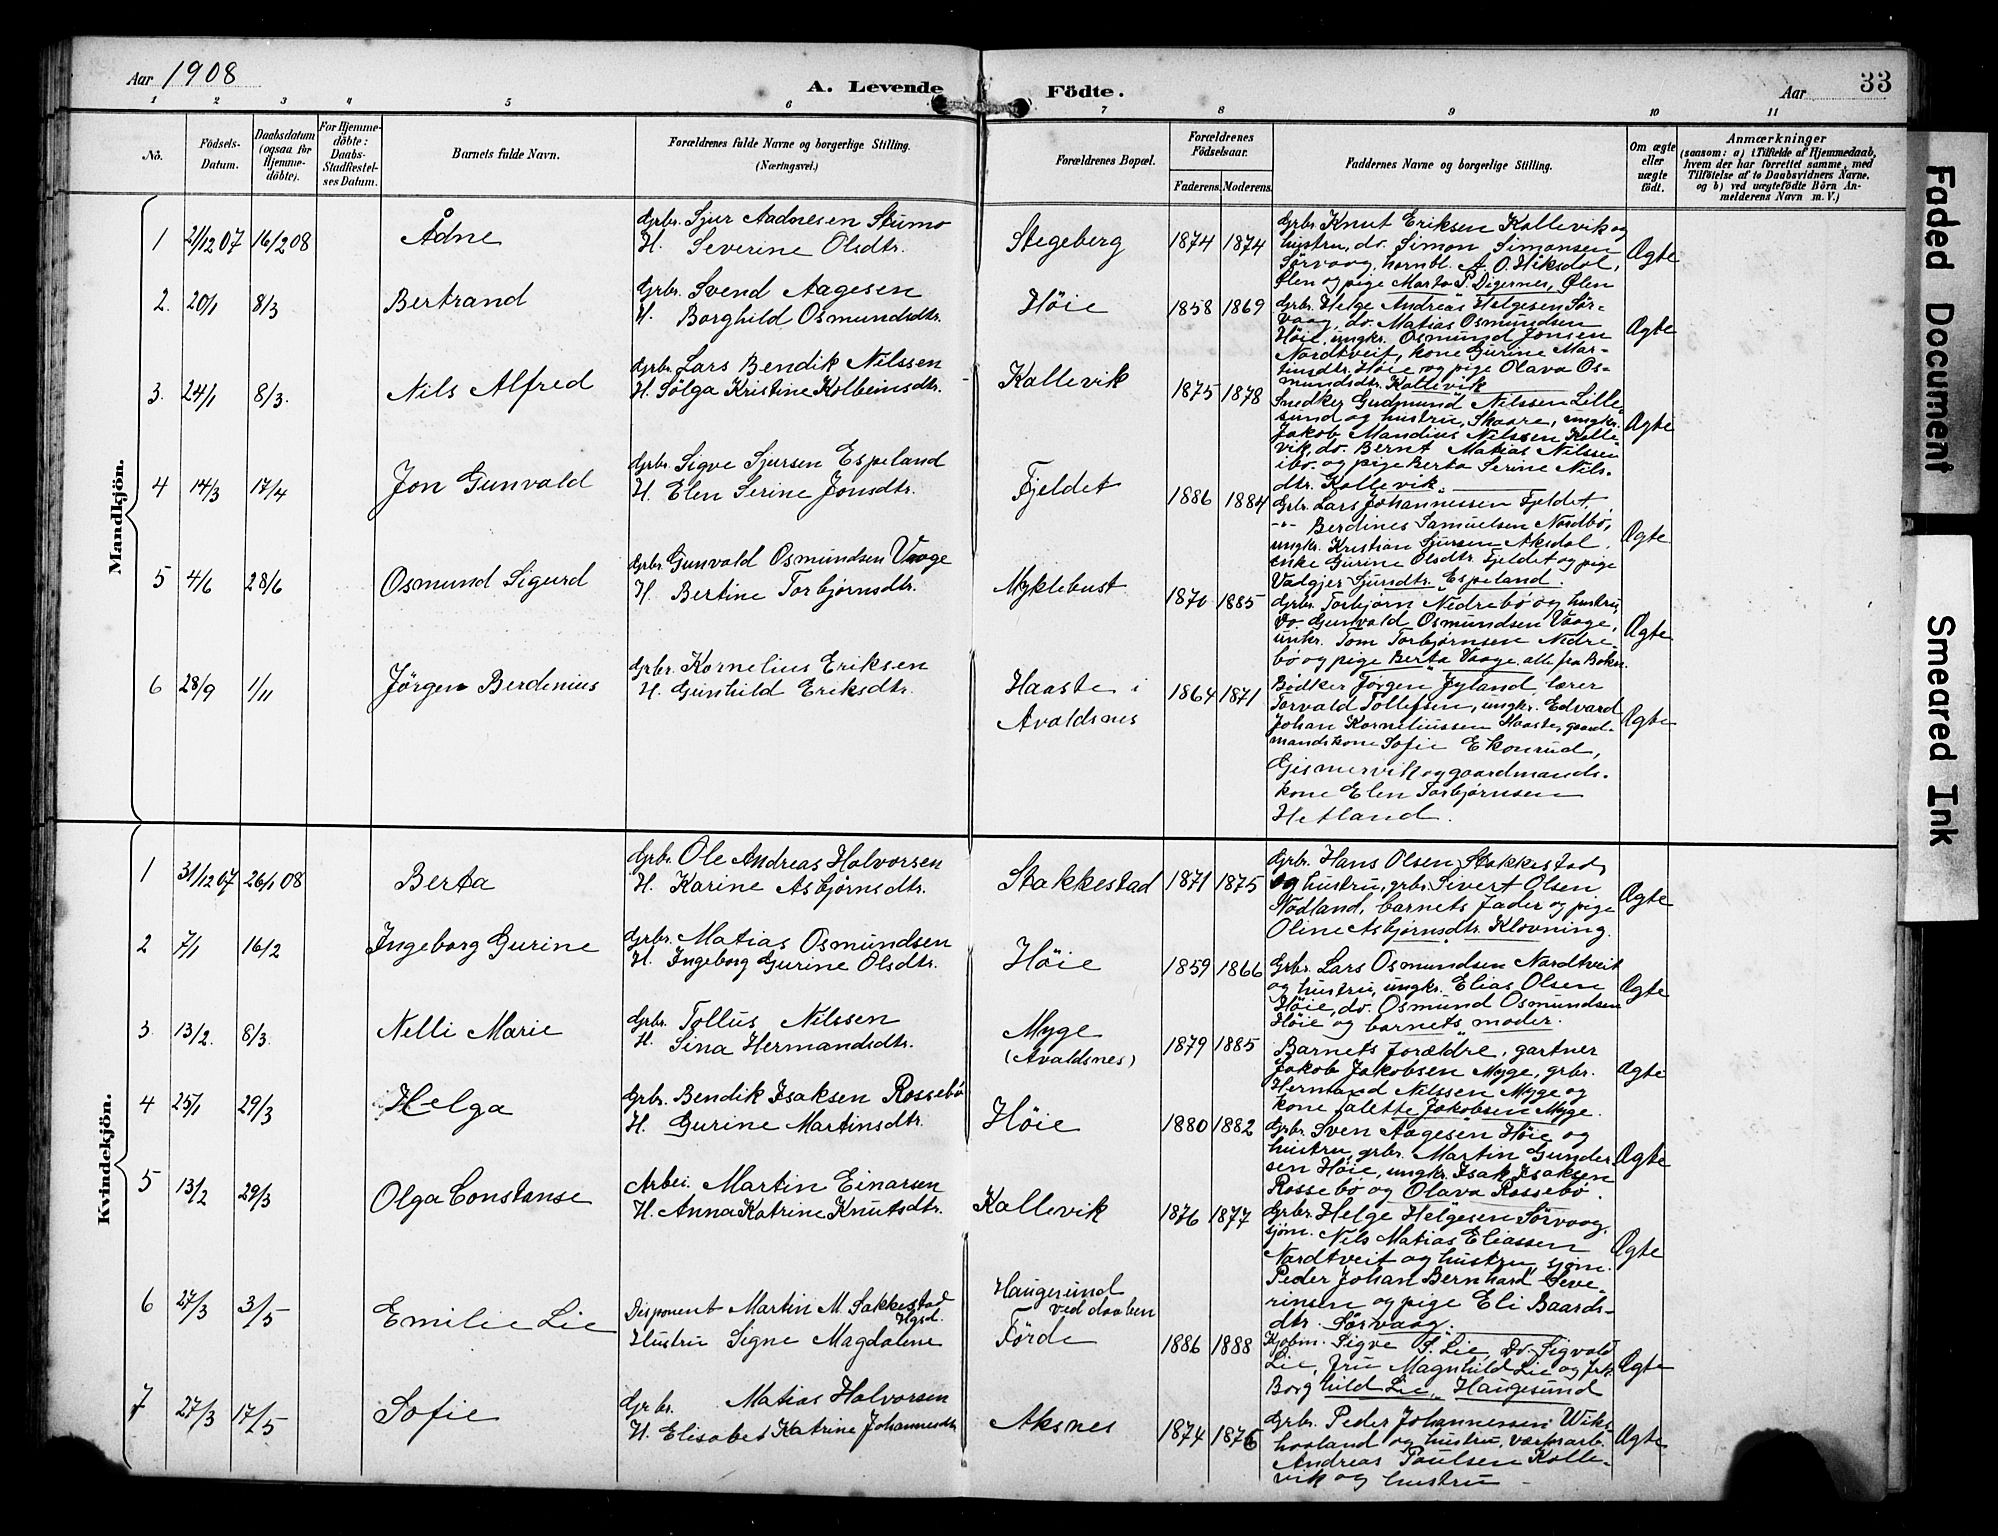 Aar 1908
A. Levende
Födte.
Aar
33
1 2 3 4 5 6 7 8 9 10 11
No.
Födsels-Datum.
Daabsdatum (ogsaa for Hjemme-döbte).
For Hjemme-döbte: Daabs-Stadfæstel-ses Datum.
Barnets fulde Navn.
Forældrenes fulde Navne og borgerlige Stilling.
(Næringsvei.)
Forældrenes Bopæl.
Forældrenes Födselsaar.
Faderens. Moderens.
Faddernes Navne og borgerlige Stilling.
Om ægte eller uægte födt.
Anmærkninger
(saasom: a) i Tilfælde af Hjemmedaab, hvem der har forrettet samme, med Tilföielse af to Daabsvidners Navne, og b) ved uægtefödte Börn An-melderens Navn m. V.)
Mandkjön.
1 21/12 07 16/2 08 Ådne
Grbr. Sjur Aadnesen Stumo
H. Severine Olsdtr.
Stegeberg 1874 1874
Grbr. Knut Eriksen Kallevik og
hustru, do. Simon Simonsen
Sørvaag, hornbl. A. O. Hiksdal,
Ølen og pige Marta P. Digernes, Ølen
Ægte
2. 20/1 8/3 Bertrand
Grbr. Svend Aagesen
H. Borghild Osmundsdtr.
Höie 1858 1869
Grbr. Helge Andreas Helgesen Sør-
vaag, do. Matias Osmundsen
Höie, ungkr. Osmund Jonsen
Nordtveit, kone Gurine Mar-
tinsdtr. Höie og pige Olava Os-
mundsdtr. Kallevik
Ægte
3. 24/1 8/3. Nils Alfred
Grbr. Lars Bendik Nilssen
H. Sølga Kristine Kolbeinsdtr.
Kallevik 1875 1878
Snedker Gudmund Nilssen Lille-
sund og hustru, Skaare, ungkr.
Jakob Mandius Nilssen Kalle-
vik, do. Bernt Matias Nilssen
ibd. og pige Berta Serine Nils-
dtr. Kallevik.
Ægte
4 14/3 17/4 Jon Gunvald
Grbr. Sigve Sjursen Espeland
H. Elen Serine Jonsdtr.
Fjeldet 1886 1884
Grbr. Lars Johannessen Fjeldet,
-"- Berdines Samuelsen Nordbö,
ungkr. Kristian Sjursen Aksdal,
enke Gurine Olsdtr. Fjeldet og pige
Valgjer Sjursdtr. Espeland.
Ægte
5 4/6 28/6 Osmund Sigurd
Grbr. Gunvald Osmundsen Vaage
H. Bertine Torbjørnsdtr.
Myklebust 1870 1885
Grbr. Torbjørn Nedrebø og hustru,
do Gunvald Osmundsen Vaage,
ungkr. Tom Torbjørnsen Nedre-
bø og pige Berta Vaage, alle fra Bokn.
Ægte
6 28/9 1/11 Jørgen Berdenius
Grbr. Kornelius Eriksen
H. Gunhild Eriksdtr.
Haaste i
Avaldsnes
1864 1871
Bødker Jørgen Jyland, lærer
Torvald Tollefsen, ungkr. Edvard
Johan Korneliussen Haaste, gaard-
mandskone Sofie Ekonrud,
Gismervik og gaardmands-
kone Elen Torbjørnsen
Hetland.
Ægte
Kvindekjön.
1 31/12 07 26/1 08 Berta
Grbr. Ole Andreas Halvorsen
H. Karine Asbjørnsdtr.
Stakkestad 1871 1875
Grbr. Hans Olsen Stakkestad
og hustru, grbr. Sivert Olsen
Nodland, barnets fader og pige
Oline Asbjørnsdtr. Klovning.
Ægte
2 7/1 16/2 Ingeborg Gurine
Grbr. Matias Osmundsen
H. Ingeborg Gurine Olsdtr.
Höie 1859 1866
Grbr. Lars Osmundsen Nordtveit
og hustru, ungkr. Elias Olsen
Höie, do. Osmund Osmundsen
Höie og barnets moder.
Ægte
3. 13/2. 8/3. Nelli Marie
Grbr. Tollus Nilssen
H. Sina Hermandsdtr.
Myge
(Avaldsnes)
1879 1885
Barnets forældre, gartner
Jakob Jakobsen Myge, grbr.
Hermand Nilssen Myge og
kone Jalette Jakobsen Myge.
Ægte
4 25/1 29/3 Helga
Grbr. Bendik Isaksen Rossebø
H. Gurine Martinsdtr.
Höie 1880 1882
Grbr. Sven Aagesen Höie og
hustru, grbr. Martin Gunder-
sen Höie, ungkr. Isak Isaksen
Rossebø og Olava Rossebø.
Ægte
5 13/2 29/3 Olga Constanse
Arbei. Martin Einarsen
H. Anna Katrine Knutsdtr.
Kallevik 1876 1877
Grbr. Helge Helgesen Sørvaag,
sjøm. Nils Matias Eliassen
Nordtveit og hustru, sjøm.
Peder Johan Bernhard Seve-
rinsen og pige Eli Baards-
dtr. Sørvaag.
Ægte
6 27/3 3/5 Emilie Lie
Disponent Martin M. Sakkestad
Hgsd.
Hustru Signe Magdalene
Haugesund
ved daaben
Førde
1886 1888
Kjøbm. Sigve S. Lie, Do. Sigvald
Lie, fru Magnhild Lie og frk.
Borghild Lie, Haugesund
Ægte
7 27/3 17/5 Sofie
Grbr. Matias Halvorsen
H. Elisabet Katrine Johannesdtr
Aksnes 1874 1876
Grbr. Peder Johannessen Wiks-
haaland og hustru, værfsarb.
Andreas Paulsen Kalle-
vik og hustru
Ægte
Faded Document
Smeared Ink